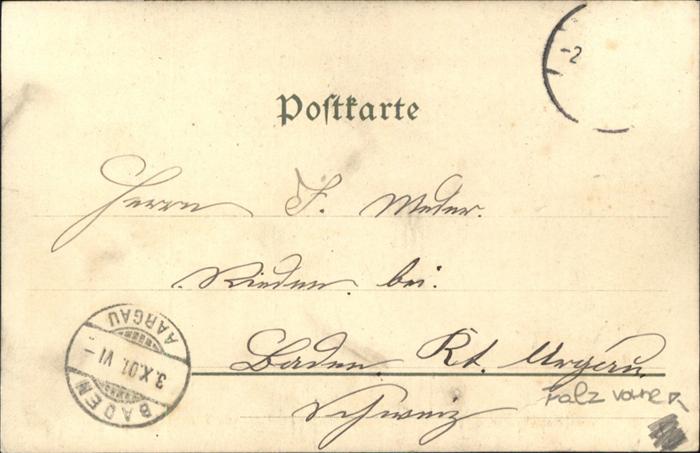 Postkarte
-2
Herrn F. Meder.
Rieden bei
Baden Kt. Aargau.
Schweiz
BADEN
3.X.01. VI -
AARGAU
Falz vorne